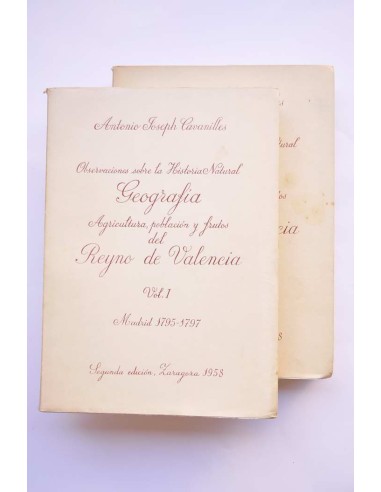 Antonio Joseph Cavanilles
Observaciones sobre la Historia Natural
Geografía
Agricultura, población y frutos
del
Reyno de Valencia
Vol. I
Madrid 1795-1797
Segunda edición, Zaragoza 1958